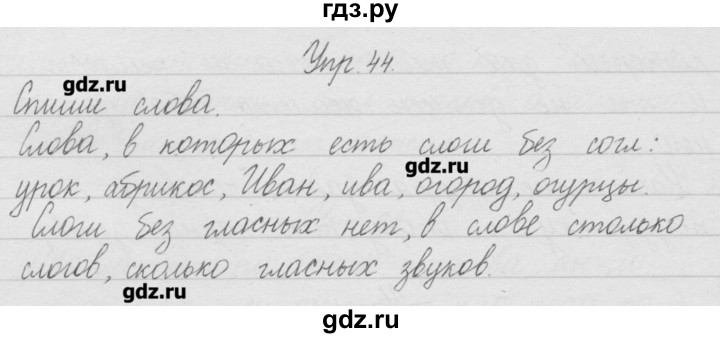 гдз.ру
Упр. 44.
gdz.ru
Спиши слова.
Слова, в которых есть слоги без согл.:
gdz.ru
урок, абрикос, Иван, ива, огород, огурцы.
Слоги без гласных нет, в слове столько
слогов, сколько гласных звуков.
gdz.ru
gdz.ru